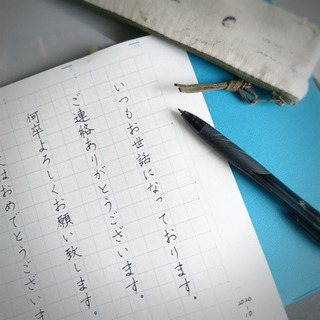 いつもお世話になっております。
ご連絡ありがとうございます。
何卒よろしくお願い致します。
はおめでとうございま
2020
10